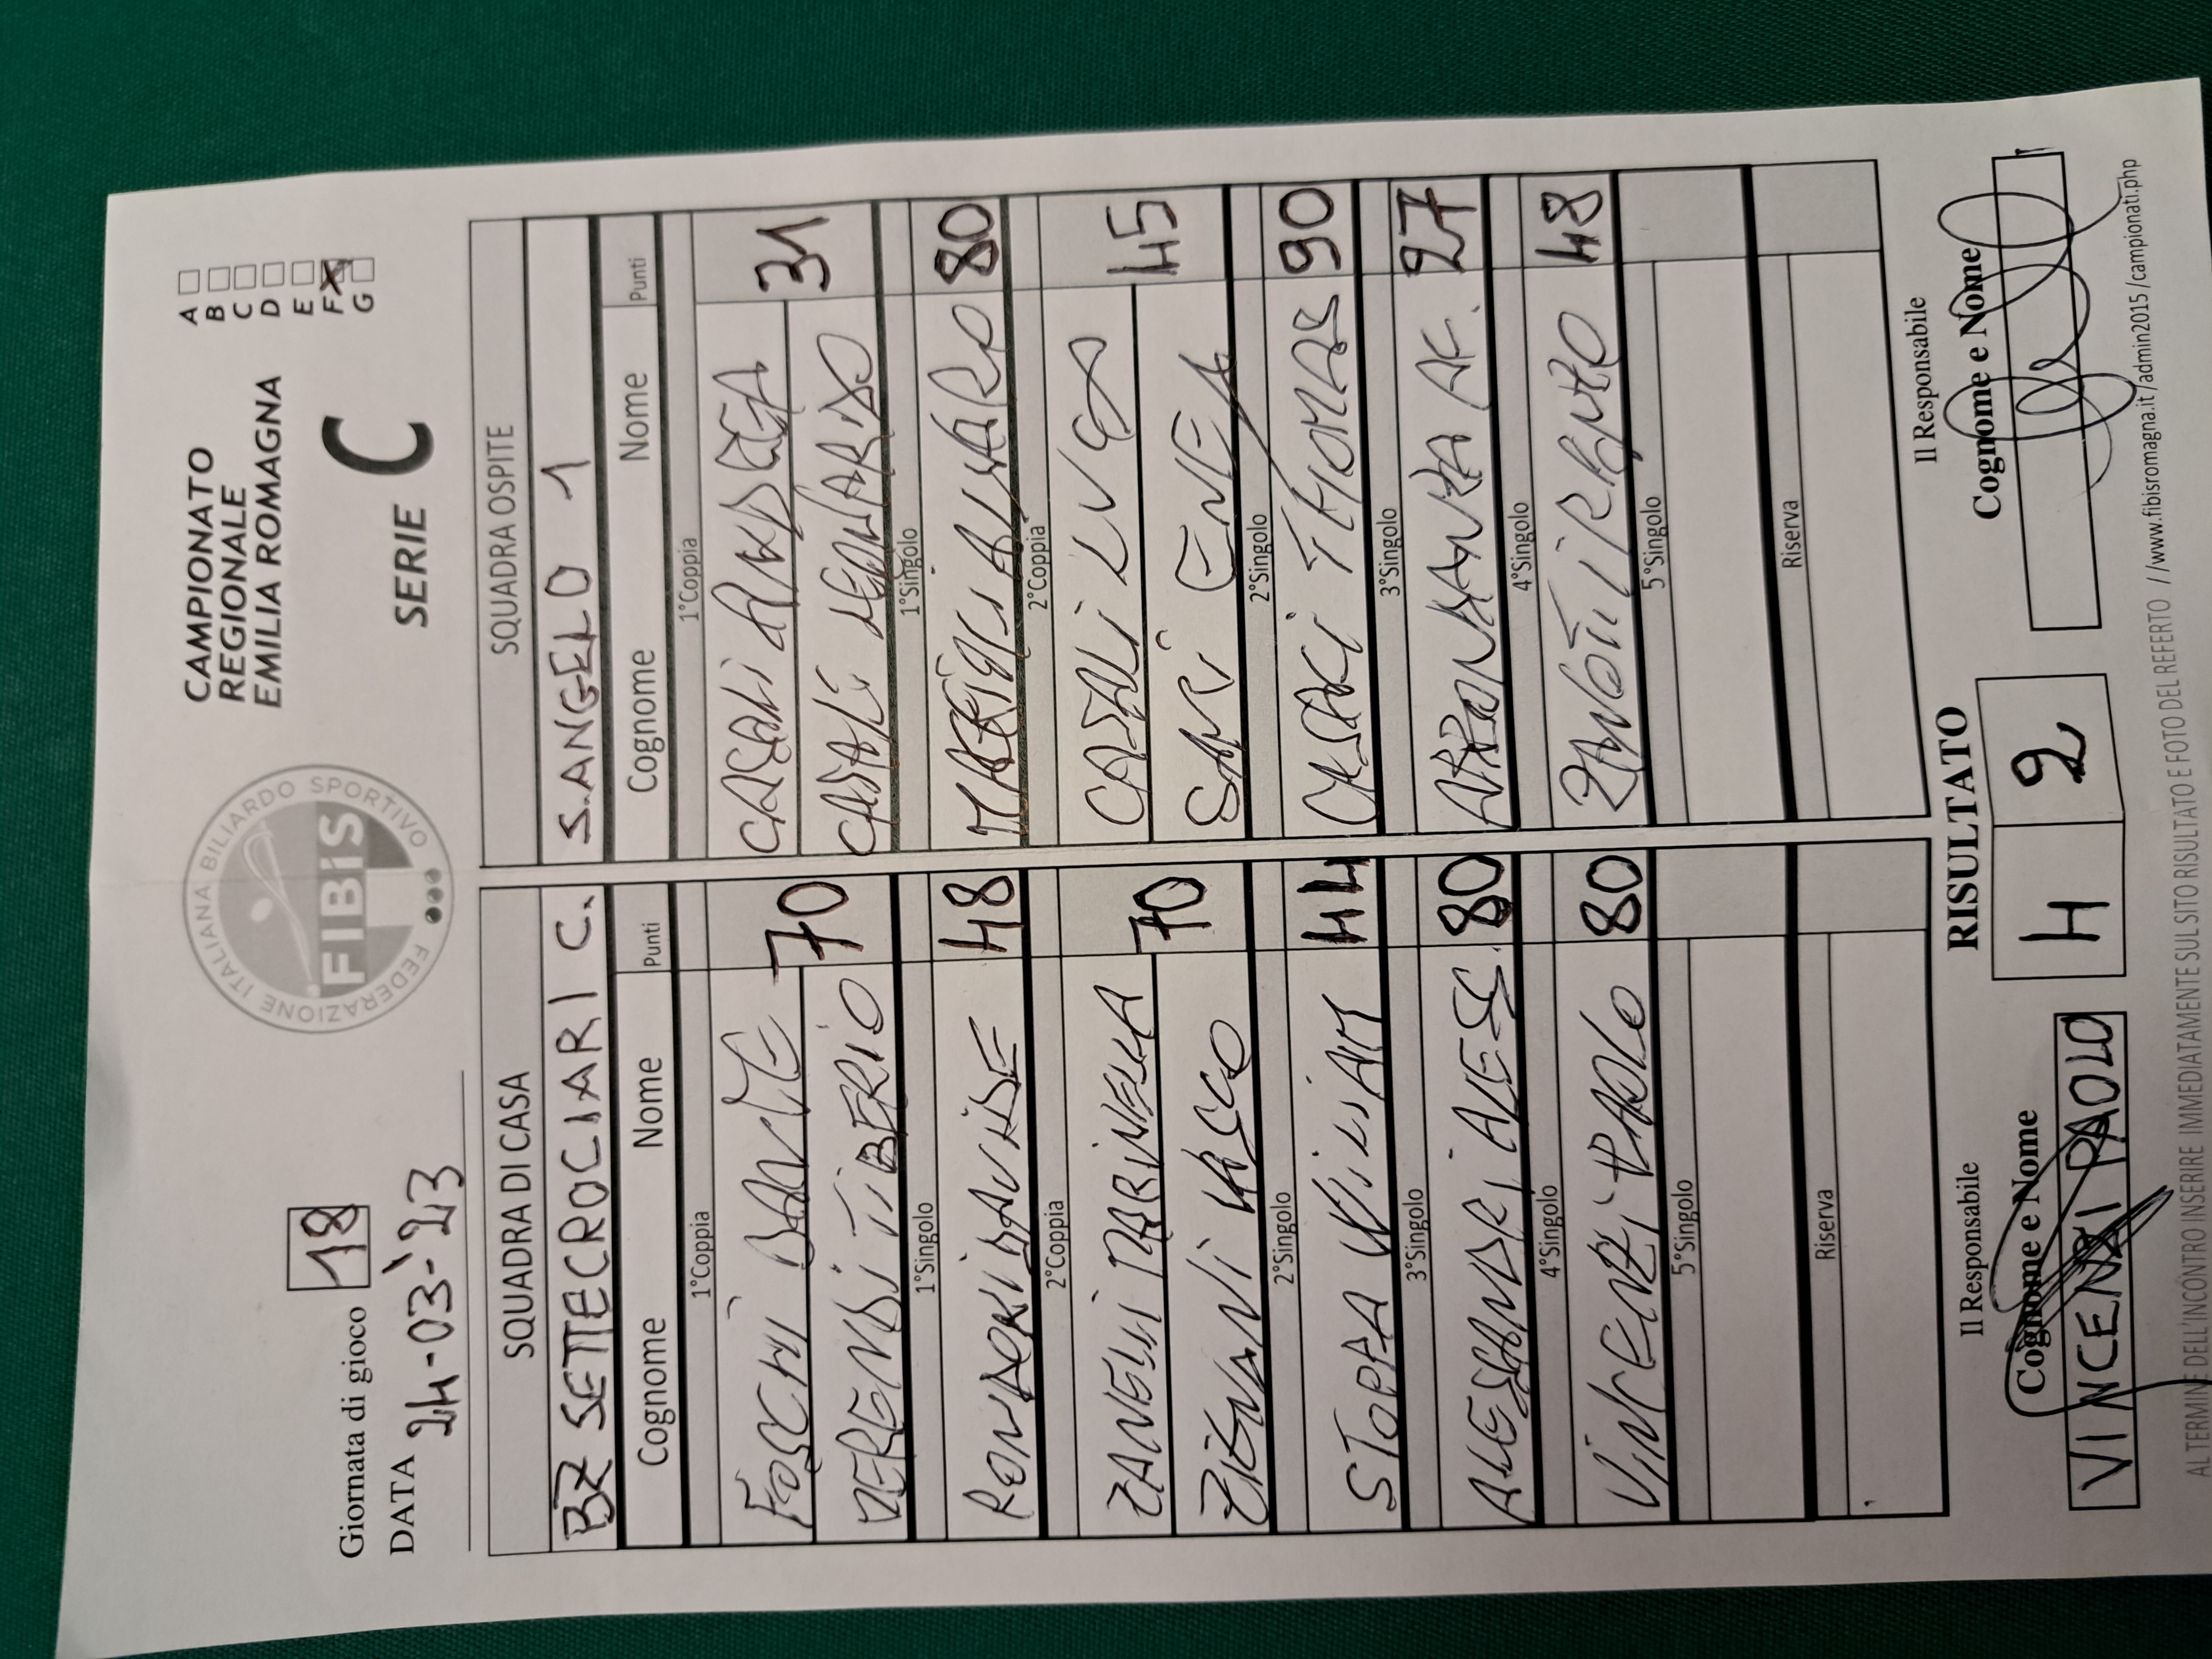 Giornata di gioco 18
DATA 24-03-'23
FEDERAZIONE ITALIANA BILIARDO SPORTIVO
FIBiS
CAMPIONATO
REGIONALE
EMILIA ROMAGNA
SERIE C
A
B
C
D
E
F X
G
SQUADRA DI CASA
BZ SETTECROCIARI C.
Cognome Nome Punti
1°Coppia
FOSCHI DANTE 70
TIBERIO
1°Singolo
RONDONI DAVIDE 48
2°Coppia
ZANELLI MARINELLA 70
VASCO
2°Singolo
STOPPA WILLIAM 44
3°Singolo
ALESSANDRI ALESS. 80
4°Singolo
VINCENZI PAOLO 80
5°Singolo
Riserva
SQUADRA OSPITE
S.ANGELO 1
Cognome Nome Punti
1°Coppia
CASALI ANDREA 31
CASALI LEONARDO
1°Singolo
ALVARO 80
2°Coppia
CASALI LUCA 45
SAVI ENEA
2°Singolo
CASACI THOMAS 90
3°Singolo
ABBONDANZA AL. 27
4°Singolo
ZANOTTI RENATO 48
5°Singolo
Riserva
Il Responsabile
Cognome e Nome
VINCENZI PAOLO
RISULTATO
4 2
Il Responsabile
Cognome e Nome
AL TERMINE DELL'INCONTRO INSERIRE IMMEDIATAMENTE SUL SITO RISULTATO E FOTO DEL REFERTO //www.fibisromagna.it/admin2015/campionati.php